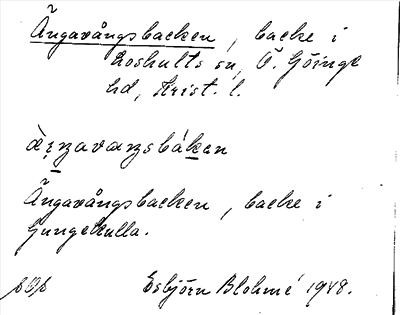 Ängavångsbacken, backe i
Loshults sn, Ö. Göinge
hd, Krist. l.
Ängavångsbacken, backe i
Gungekulla.
Esbjörn Blohmé 1948.